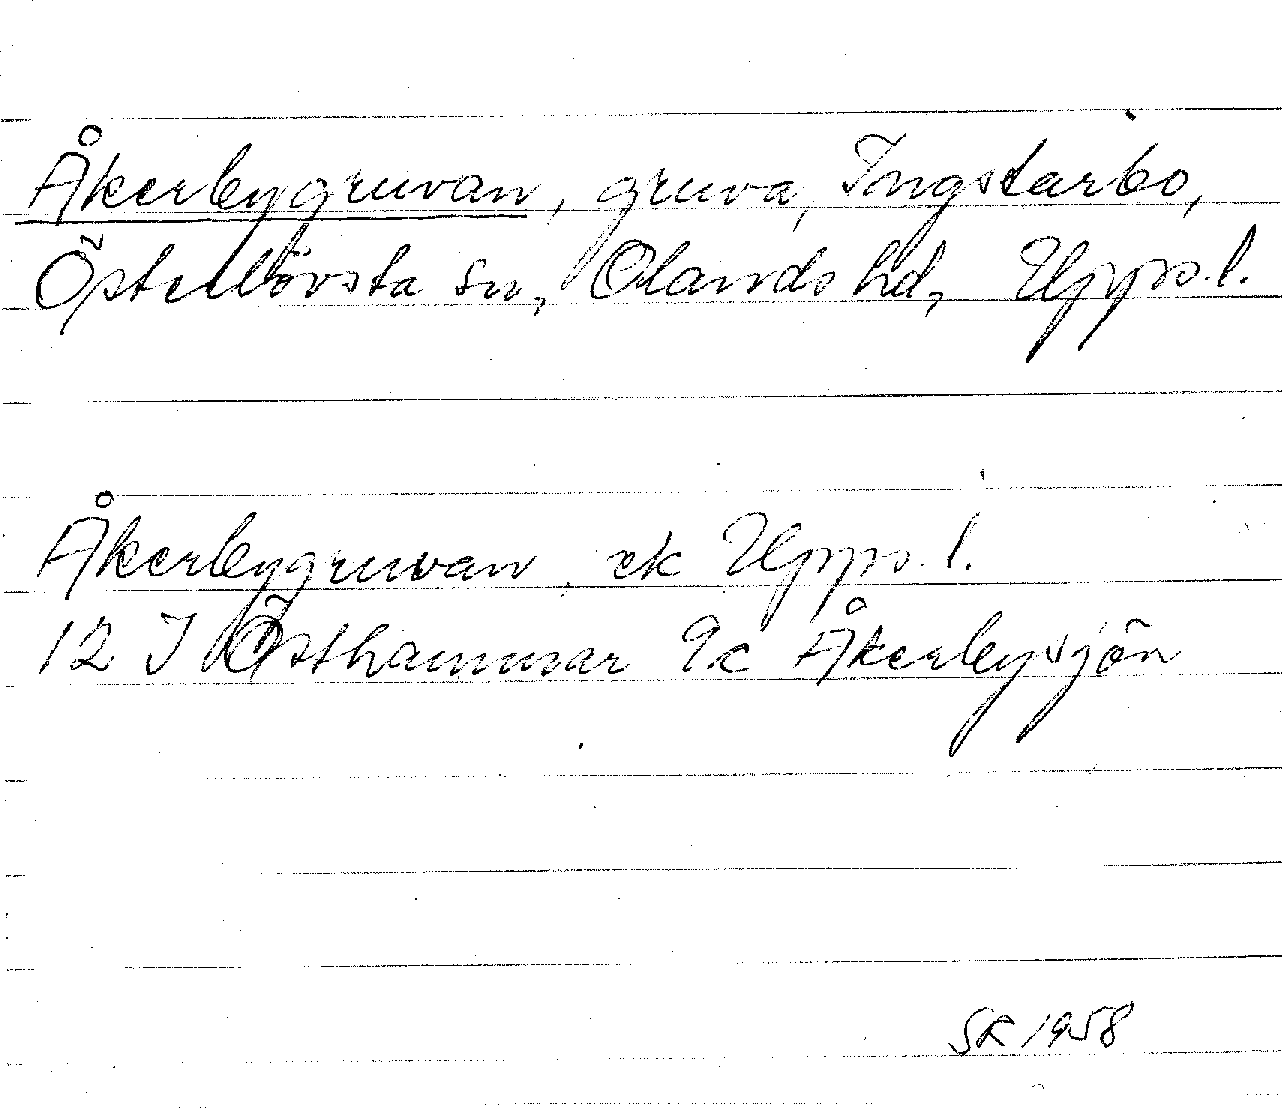 Åkerbygruvan, gruva, Ingstarbo,
Österlövsta sn, Olands hd, Upps.l.
Åkerbygruvan, ek Upps.l.
12 I Östhammar 9c Åkerbysjön
SR 1958